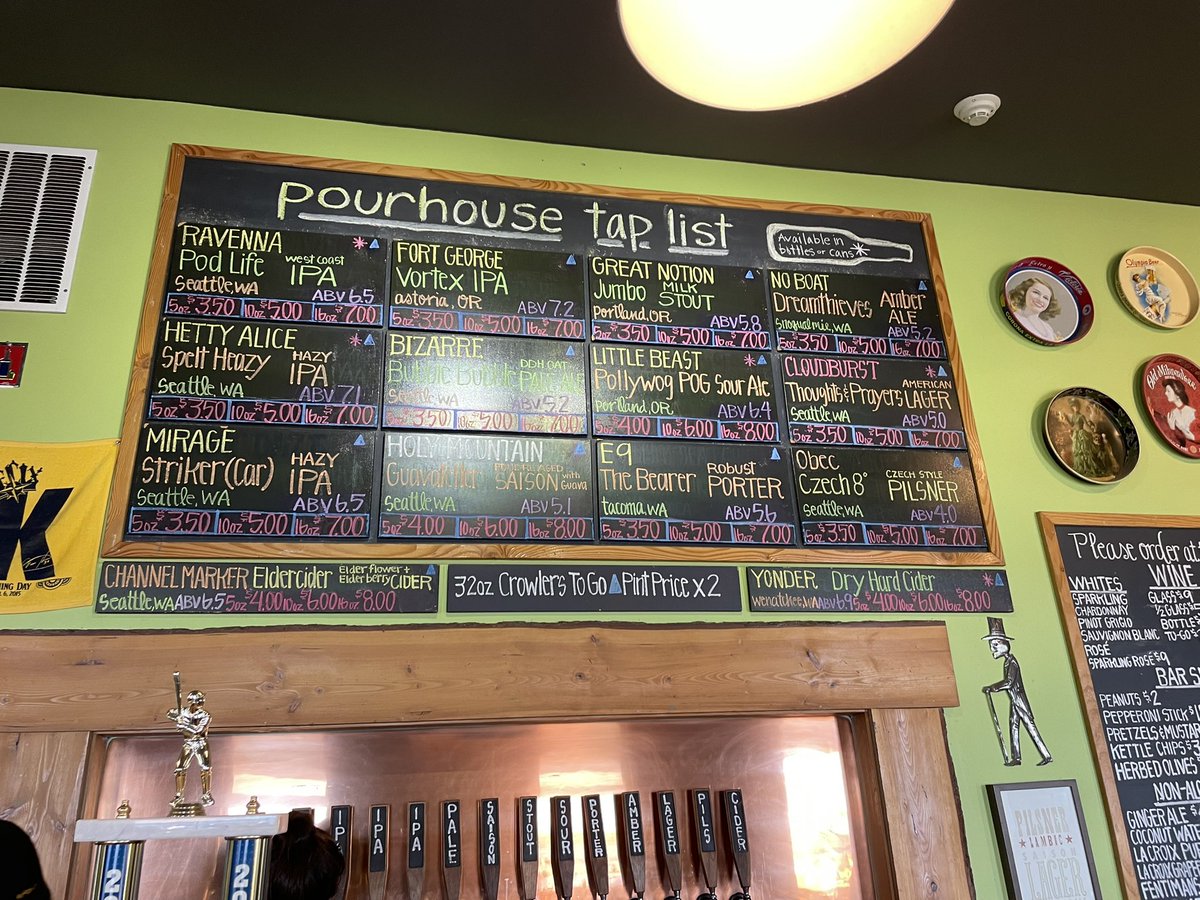 Pourhouse tap list
Available in
bottles or cans*
RAVENNA
Pod Life west coast IPA
Seattle, WA ABV 6.5
5oz $3.50 10oz $5.00 16oz $7.00
FORT GEORGE
Vortex IPA
astoria, OR ABV 7.2
5oz $3.50 10oz $5.00 16oz $7.00
GREAT NOTION
Jumbo MILK STOUT
portland, OR ABV 5.8
5oz $3.50 10oz $5.00 16oz $7.00
NO BOAT
Dreamthieves Amber ALE
Snoqualmie, WA ABV 5.2
5oz $3.50 10oz $5.00 16oz $7.00
HETTY ALICE
Spelt Heazy HAZY IPA
Seattle, WA ABV 7.1
5oz $3.50 10oz $5.00 16oz $7.00
BIZARRE
Bubble Bubble DDH OAT PALE ALE
ABV 5.2
5oz $3.50 10oz $5.00 16oz $7.00
LITTLE BEAST
Pollywog POG Sour Ale
Portland, OR ABV 6.4
5oz $4.00 10oz $6.00 16oz $8.00
CLOUDBURST
Thoughts & Prayers AMERICAN LAGER
Seattle, WA ABV 5.0
5oz $3.50 10oz $5.00 16oz $7.00
MIRAGE
Striker (Car) HAZY IPA
Seattle, WA ABV 6.5
5oz $3.50 10oz $5.00 16oz $7.00
HOLY MOUNTAIN
SAISON with Guava
Seattle, WA ABV 5.1
5oz $4.00 10oz $6.00 16oz $8.00
E9
The Bearer ROBUST PORTER
tacoma, WA ABV 5.6
5oz $3.50 10oz $5.00 16oz $7.00
Obec
Czech 8° CZECH STYLE PILSNER
Seattle, WA ABV 4.0
5oz $3.50 10oz $5.00 16oz $7.00
CHANNEL MARKER Eldercider Elderflower + Elderberry CIDER
Seattle, WA ABV 6.5 5oz $4.00 10oz $6.00 16oz $8.00
32oz CROWLERS TO GO PINT PRICE x 2
YONDER Dry Hard Cider
Wenatchee, WA ABV 6.9 5oz $4.00 10oz $6.00 16oz $8.00
K
Olympia Beer
Old Milwaukee
Please order at
WINE
WHITES GLASS $9
SPARKLING ½ GLASS
CHARDONNAY BOTTLE
PINOT GRIGIO TO-GO
SAUVIGNON BLANC
ROSÉ
SPARKLING ROSÉ $9
BAR S
PEANUTS $2
PEPPERONI STICK $1
PRETZELS & MUSTARD
KETTLE CHIPS $
HERBED OLIVES
NON-AL
GINGER ALE
COCONUT WATER
LA CROIX
LACROIX
FENTIMAN
IPA
IPA
IPA
PALE
SAISON
STOUT
SOUR
PORTER
AMBER
LAGER
PILS
CIDER
PILSNER
LAMBIC
SAISON
LAGER